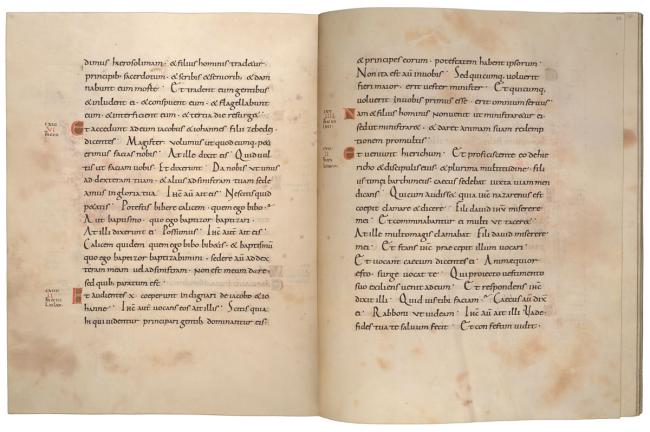 dimus hierosolimam · & filius hominis tradetur
principib; sacerdotum · & scribis & seniorib; & dam
nabunt eum morte · Et tradent eum gentibus
& inludent ei · & conspuent eum · & flagellabunt
eum · & interficient eum · & tertia die resurg&
Et accedunt ad eum iacobus & iohannes filii zebedei
dicentes · Magister volumus ut quodcumq; pe&
erimus facias nobis · At ille dixit eis · Quid vul
tis ut faciam vobis · Et dixerunt · Da nobis ut unus
ad dexteram tuam · & alius ad sinistram tuam sede
amus in gloria tua · Ihs aū ait eis · Nescitis quid
p&atis · Potestis bibere calicem quem ego bibo ·
Aut baptismo quo ego baptizor baptizari ·
At illi dixerunt ei · Possimus · Ihs aūt ait eis ·
Calicem quidem quem ego bibo bib&is · & baptismū
quo ego baptizor baptizabimini · sedere aū ad dex
teram meam vel ad sinistram · Non est meum dare ·
sed quib; paratum est ·
Et audientes x · coeperunt indignari de iacobo & io
hanne · Ihs aūt vocans eos ait illis · Scitis quia
hi qui videntur principari gentib; dominantur eis ·
& principes eorum · potestatem habent ipsorum ·
Non ita est aū in vobis · Sed quicumq; voluerit
fieri maior · erit vester minister · Et quicumq;
voluerit in vobis primus esse · erit omnium servus
Nam & filius hominis non venit ut ministrar&ur ei
sed ut ministrar& · & dar& animam suam redemp
tionem pro multis ·
Et venunt hierichum · Et proficiscente eo de hie
richo & discipulis eius & plurima multitudine · fili
us timei bartimeus caecus sedebat iuxta viam men
dicans · Qui cum audiss& quia ihs nazarenus est
coepit clamare & dicere · Fili david ihu miserere
mei · Et comminabantur ei multi ut tacer& ·
At ille multo magis clamabat · Fili david miserere
mei · Et stans ihs praecepit illum vocari ·
Et vocant caecum dicentes ei · Animaequior
esto · surge vocat te · Qui proiecto vestimento
suo exiliens venit ad eum · Et respondens ihs
dixit illi · Quid vis tibi faciam · Caecus aū dix
ei · Rabboni ut videam · Ihs aū ait illi · Vade
fides tua te salvum fecit · Et confestim vidit ·